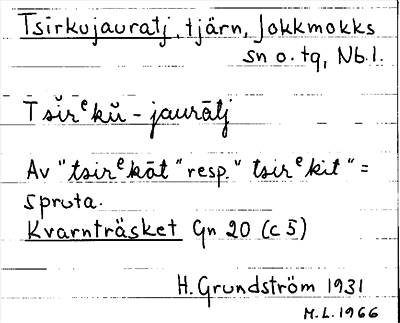 Tsirkujauratj, tjärn, Jokkmokks
sn o. tg, Nb.l.
Tšĭrᵉkŭ - jaurātj
Av "tsirᵉkāt" resp. "tsirᵉkit" =
spruta.
Kvarnträsket Gn 20 (c5)
H. Grundström 1931
M.L. 1966